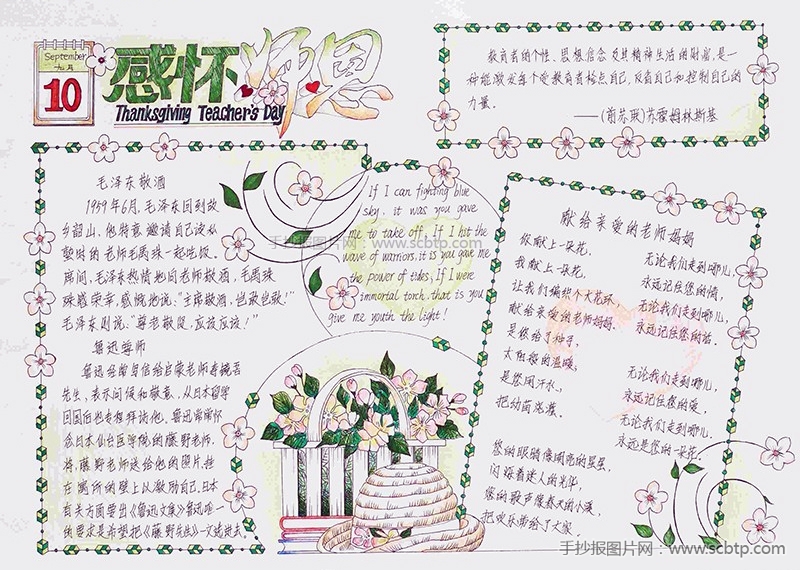 September
九月
10
感怀师恩
Thanksgiving Teacher's Day
教育者的个性、思想信念及其精神生活的财富,是一
种能激发每个受教育者检点自己,反省自己和控制自己的
力量。
——(前苏联)苏霍姆林斯基
毛泽东敬酒
1959年6月,毛泽东回到故
乡韶山。他特意邀请自己读私
塾时的老师毛禹珠一起吃饭。
席间,毛泽东热情地向老师敬酒,毛禹珠
殊感荣幸,感愧地说:“主席敬酒,岂敢岂敢!”
毛泽东则说:“尊老敬贤,应该应该!”
鲁迅尊师
鲁迅经常写信给启蒙老师寿镜吾
先生,表示问候和敬意,从日本留学
回国后也专程拜访他。鲁迅常常怀
念日本仙台医学院的藤野老师,
将藤野老师送给他的照片,挂
在寓所的壁上以激励自己,日本
有关方面要出《鲁迅文集》鲁迅唯一
的要求是希望把《藤野先生》一文选进去。
If I can fighting blue
sky, it was you gave
me to take off, If I hit the
wave of warriors, it is you gave me
the power of tides, If I were
immortal torch, that is you
give me youth the light!
献给亲爱的老师妈妈
你献上一朵花,
我献上一朵花,
让我们编织个大花环,
献给亲爱的老师妈妈。
是您给了种子,
太阳您的温暖,
是您用汗水,
把幼苗浇灌。
您的眼睛像闪亮的星星,
闪烁着迷人的光华,
您的歌声像春天的小溪,
把欢乐带给了大家。
无论我们走到哪儿,
永远记住您的情,
无论我们走到哪儿,
永远记住您的话。
无论我们走到哪儿,
永远记住您的爱,
无论我们走到哪儿,
永远是您的一朵花。
手抄报图片网:www.scbtp.com
手抄报图片网:www.scbtp.com